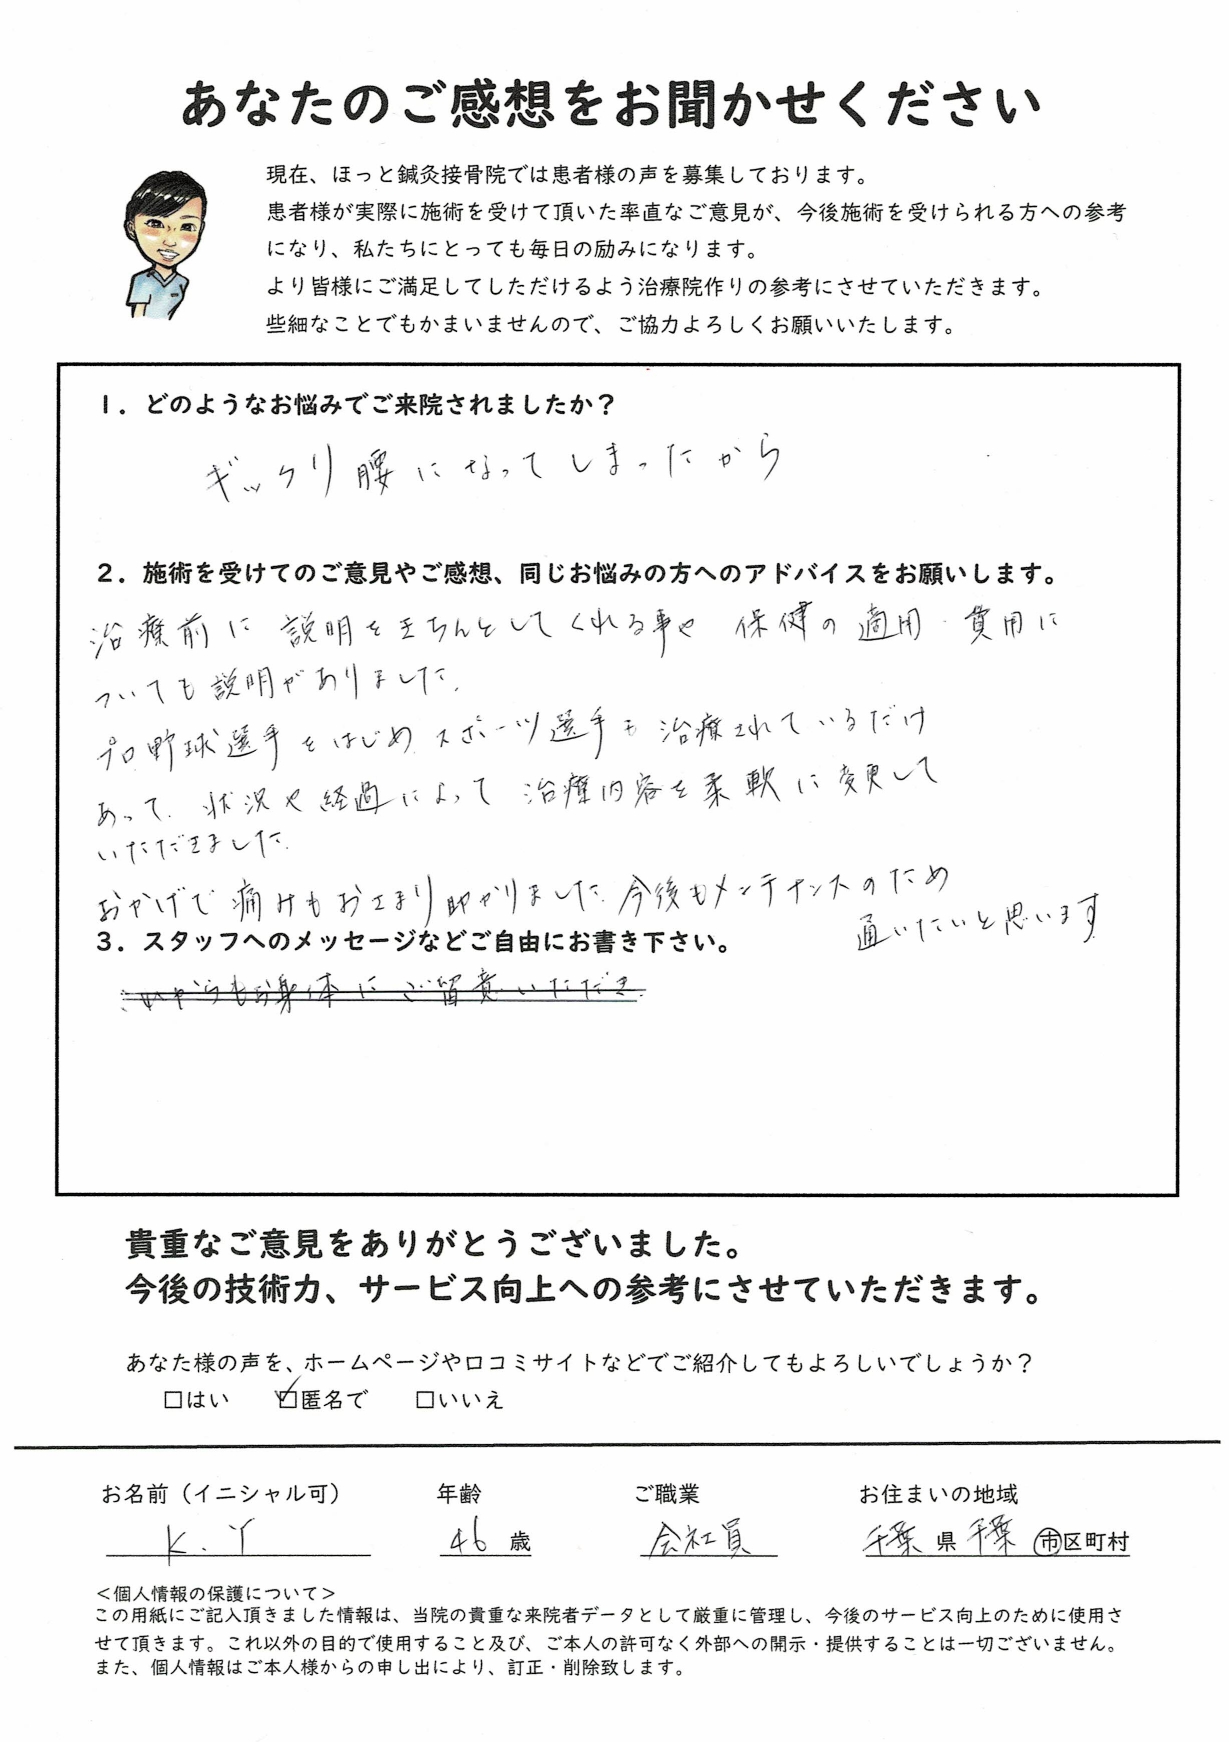 あなたのご感想をお聞かせください
現在、ほっと鍼灸接骨院では患者様の声を募集しております。
患者様が実際に施術を受けて頂いた率直なご意見が、今後施術を受けられる方への参考
になり、私たちにとっても毎日の励みになります。
より皆様にご満足してしただけるよう治療院作りの参考にさせていただきます。
些細なことでもかまいませんので、ご協力よろしくお願いいたします。
1. どのようなお悩みでご来院されましたか？
ギックリ腰になってしまったから
2. 施術を受けてのご意見やご感想、同じお悩みの方へのアドバイスをお願いします。
治療前に説明をきちんとしてくれる事や 保健の適用・費用に
ついても説明がありました。
プロ野球選手をはじめ、スポーツ選手も治療されているだけ
あって、状況や経過によって治療内容を柔軟に変更して
いただきました。
おかげで痛みもおさまり助かりました。今後もメンテナンスのため
通いたいと思います
3. スタッフへのメッセージなどご自由にお書き下さい。
これからもお身体にご留意いただき
貴重なご意見をありがとうございました。
今後の技術力、サービス向上への参考にさせていただきます。
あなた様の声を、ホームページや口コミサイトなどでご紹介してもよろしいでしょうか？
□はい ☑匿名で □いいえ
お名前（イニシャル可） 年齢 ご職業 お住まいの地域
K.Y 46歳 会社員 千葉県 千葉 市区町村
＜個人情報の保護について＞
この用紙にご記入頂きました情報は、当院の貴重な来院者データとして厳重に管理し、今後のサービス向上のために使用さ
せて頂きます。これ以外の目的で使用すること及び、ご本人の許可なく外部への開示・提供することは一切ございません。
また、個人情報はご本人様からの申し出により、訂正・削除致します。